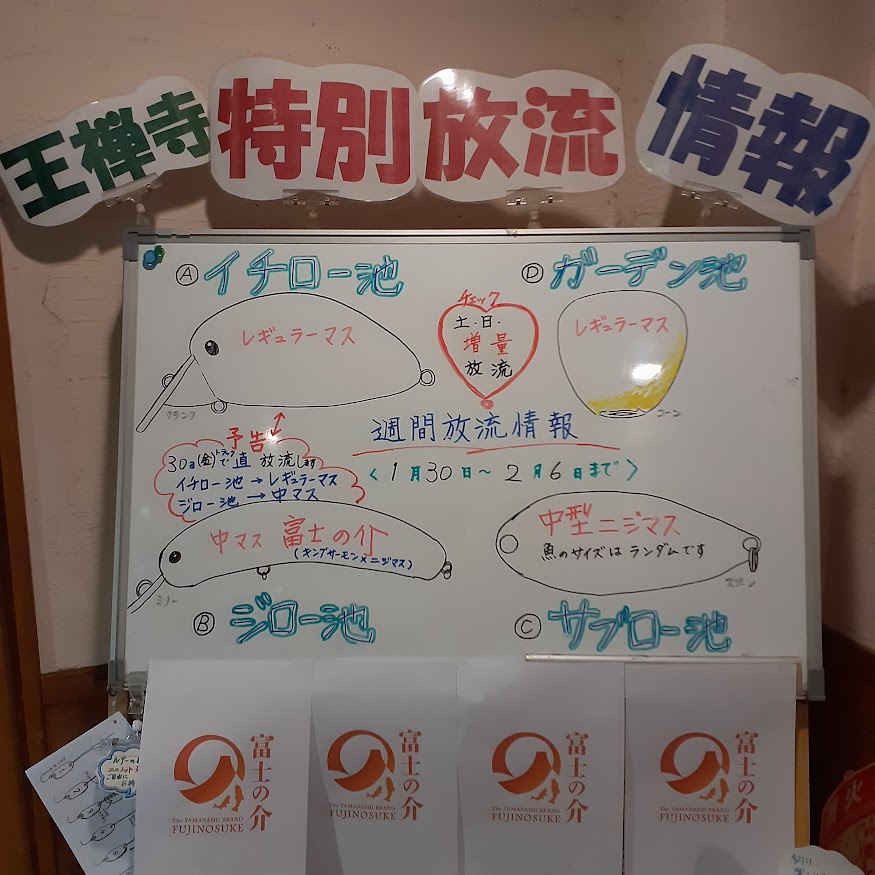 王禅寺 特別放流 情報
Ⓐ イチロー池
Ⓓ ガーデン池
レギュラーマス
クランク
チェック
土.日.
増量
放流
レギュラーマス
コーン
予告
30日(金)トラックで直放流します
イチロー池→レギュラーマス
ジロー池→中マス
週間放流情報
<1月30日～2月6日まで>
中マス 富士の介
(キングサーモン×ニジマス)
ミノー
中型ニジマス
魚のサイズはランダムです
スプーン
Ⓑ ジロー池
Ⓒ サブロー池
富士の介
The YAMANASHI BRAND
FUJINOSUKE
富士の介
The YAMANASHI BRAND
FUJINOSUKE
富士の介
The YAMANASHI BRAND
FUJINOSUKE
富士の介
The YAMANASHI BRAND
FUJINOSUKE
ご自由に
火
釣り